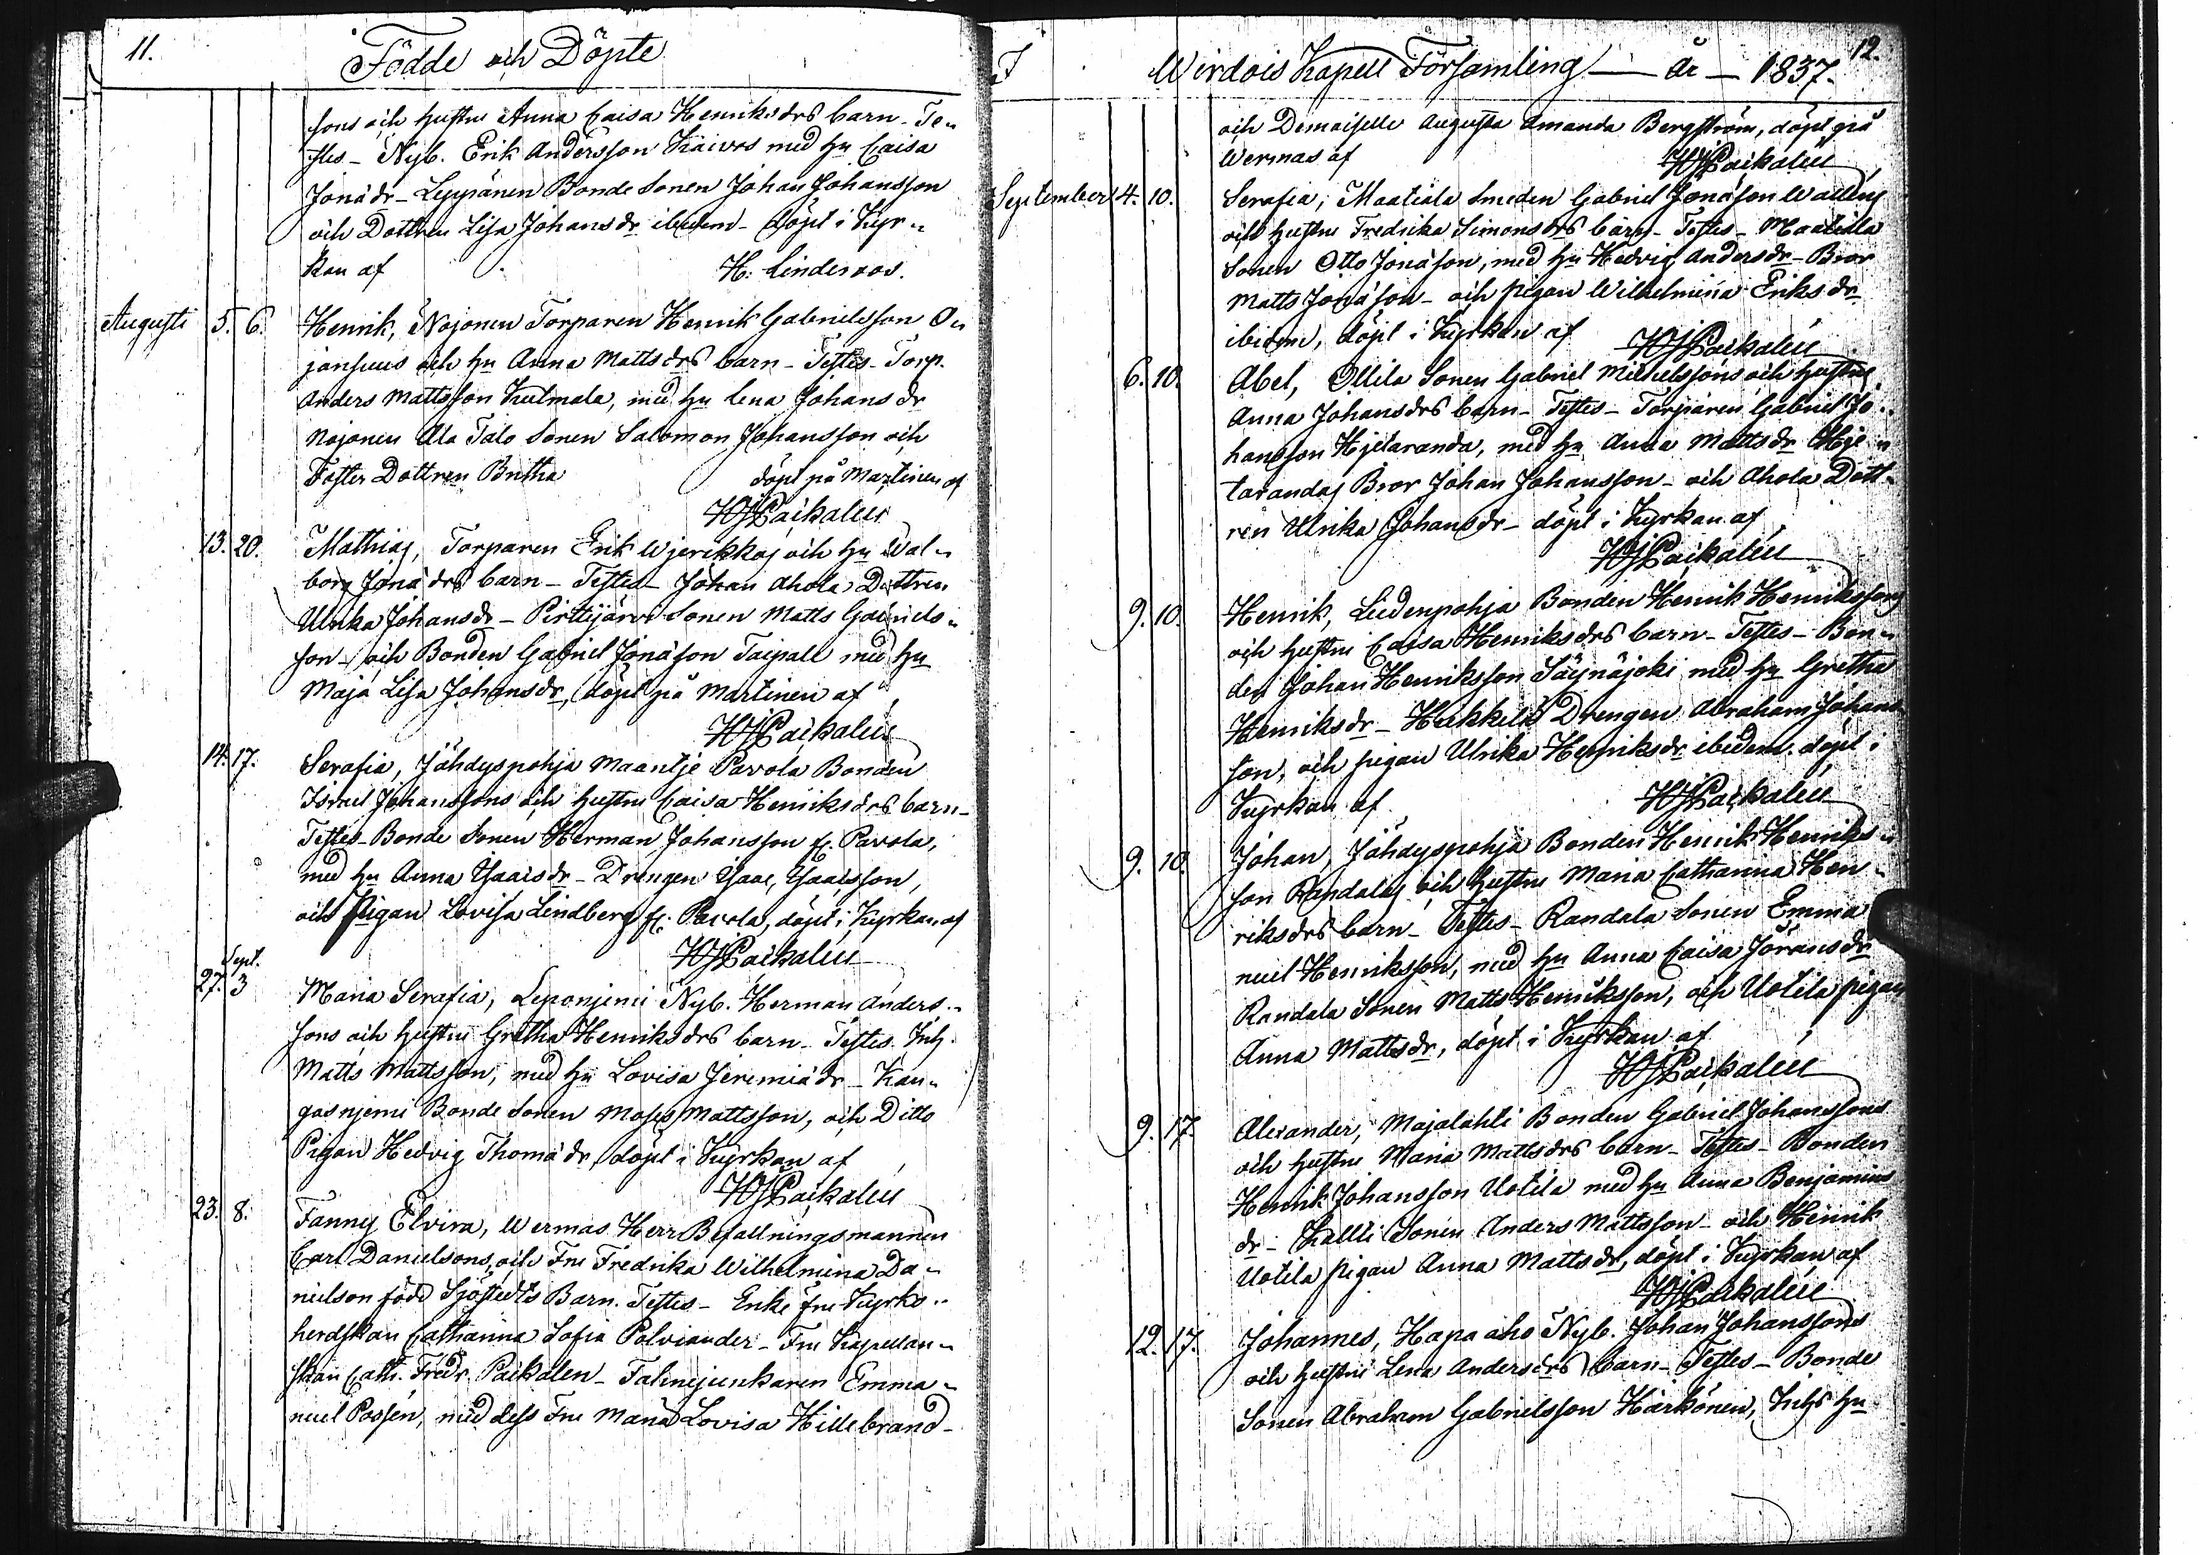 11.
Födde och Döpte
sons och hustru Anna Caisa Henriksdrs barn - Te-
stes - Nyb. Erik Andersson Käivos med hu Caisa
Jonädr - Leppänen Bonde Sonen Johan Johansson
och Dottren Lisa Johansdr ibidem - döpt i Kyr-
kan af H: Linderoos.
Augusti 5. 6. Henrik, Nojonen Torparen Henrik Gabrielsson
och hu Anna Mattsdrs barn - Testes - Torp.
Anders Mattsson Kulmala, med hu Lena Johansdr
Nojonen Ala Talo Sonen Salomon Johansson och
Foster Dottren Britha döpt på Martinen af
HJPaikalén
13. 20. Mathias, Torparen Erik Wjerikkas och hu Wal-
borg Jonädrs barn - Testes - Johan Ahola, Dottren
Ulrika Johansdr - Pirttijärvi Sonen Matts Gabriels-
son - och Bonden Gabriel Jonäson Taipale med hu
Maja Lisa Johansdr, döpt på Martinen af
HJPaikalén
14. 17. Serafia, Jähdyspohja Maantje Pavola Bonden
Israel Johanssons och hustru Caisa Henriksdrs barn -
Testes - Bonde Sonen Herman Johansson fr. Pavola,
med hu Anna Isaacsdr - Drengen Isaac Isaacsson,
och Pigan Lovisa Lindberg fr. Pavola, döpt i Kyrkan af
HJPaikalén
Sept.
27. 3 Maria Serafia, Leponjemi Nyb. Herman Anders-
sons och hustru Gretha Henriksdrs barn - Testes. Inh.
Matts Mattsson, med hu Lovisa Jeremiädr - Kan-
gasnjemi Bonde Sonen Moses Mattsson, och Ditto
Pigan Hedvig Thomädr, döpt i Kyrkan af
HJPaikalén
23. 8. Fanny Elvira, Wermas Herr Befallningsmannen
Carl Danielsons, och Fru Fredrika Wilhelmina Da-
nielson född Sjöstedts Barn. Testes - Enke fru Kyrko-
herdskan Catharina Sofia Polviander - Fru Kapellan-
skan Cath. Fredr. Paikalen - Fahnejunkaren Emma-
nuel Possén, med dess Fru Maria Lovisa Hillebrand -
I Wirdois Kapell Församling — År — 1837. 12.
och Demoiselle Augusta Amanda Bergström, döpt på
Wermas af HJPaikalén
September 4. 10. Serafia, Maatiala Smeden Gabriel Jonäson Walleny
och hustru Fredrika Simonsdrs barn - Testes - Maatiala
Sonen Otto Jonäson, med hu Hedvig Andersdr - Bror
Matts Jonäson - och pigan Wilhelmina Eriksdr
ibidem, döpt i Kyrkan af HJPaikalén
6. 10. Abel, Ollila Sonen Gabriel Michelssons och hustru
Anna Johansdrs barn - Testes - Torparen Gabriel Jo-
hansson Hjetaranda, med hu Anna Mattsdr Hje-
tarandas Bror Johan Johansson - och Ahola Dott-
ren Ulrika Johansdr - döpt i Kyrkan af
HJPaikalén
9. 10. Henrik, Liedenpohja Bonden Henrik Henrikssons
och hustru Caisa Henriksdrs barn - Testes - Bon-
den Johan Henriksson Säynäjoki med hu Gretha
Henriksdr - Heikkilä Drengen Abraham Johans-
son, och pigan Ulrika Henriksdr ibidem döpt i
Kyrkan af HJPaikalén
9. 10. Johan, Jähdyspohja Bonden Henrik Henriks-
son Randalas och hustru Maria Catharina Hen-
riksdrs barn - Testes - Randala Sonen Emma-
nuel Henriksson, med hu Anna Caisa Jöransdr
Randala Sonen Matts Henriksson, och Uotila pigan
Anna Mattsdr, döpt i Kyrkan af
HJPaikalén
9. 17. Alexander, Majalahti Bonden Gabriel Johanssons
och hustru Maria Mattsdrs barn - Testes - Bonden
Henrik Johansson Uotila med hu Anna Benjamins
dr - Kalli Sonen Anders Mattsson - och Henrik
Uotila pigan Anna Mattsdr, döpt i Kyrkan af
HJPaikalén
12. 17. Johannes, Hapaaho Nyb. Johan Johanssons
och hustru Lena Andersdrs barn - Testes - Bonde
Sonen Abraham Gabrielsson Härkönen, Inhs hu